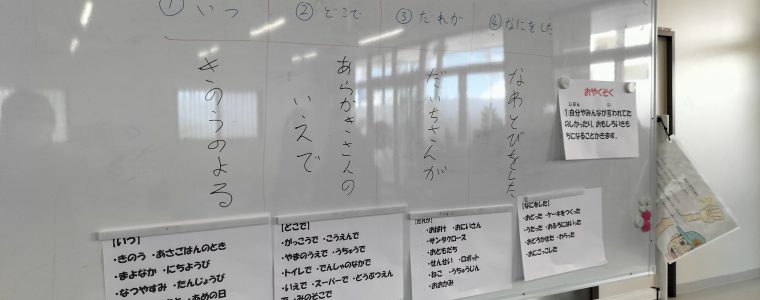 ① いつ
② どこで
③ だれが
④ なにをした
きのうのよる
あらかきさんの
いえで
だいちさんが
なわとびをした
おやくそく
じぶん い
①自分やみんなが言われてた
のしかったり、おもしろいきも
ちになることかきます。
【いつ】
・きのう ・あさごはんのとき
・まよなか ・にちようび
・なつやすみ ・たんじょうび
・あめの日
【どこで】
・がっこうで ・こうえんで
・やまのうえで ・うちゅうで
・トイレで ・でんしゃのなかで
・いえで ・スーパーで ・どうぶつえん
で ・みのそこで
【だれが】
・おばけ ・おにいさん
・サンタクロース
・おともだち
・せんせい ・ロボット
・ねこ ・うちゅうじん
・おおかみ
【なにをした】
・おどった ・ケーキをつくった
・うたった ・おふろにはいった
・おどろかせた ・わらった
・おにごっこした